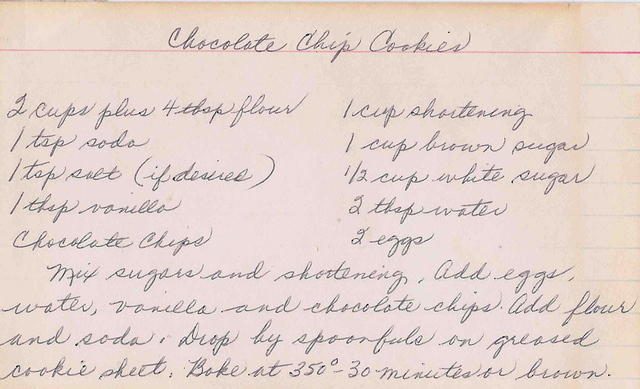 Chocolate Chip Cookies
2 cups plus 4 tbsp flour
1 cup shortening
1 tsp soda
1 cup brown sugar
1 tsp salt (if desires)
1/2 cup white sugar
1 tbsp vanilla
2 tbsp water
Chocolate Chips
2 eggs
Mix sugars and shortening. Add eggs,
water, vanilla and chocolate chips. Add flour
and soda. Drop by spoonfuls on greased
cookie sheet. Bake at 350° - 30 minutes or brown.